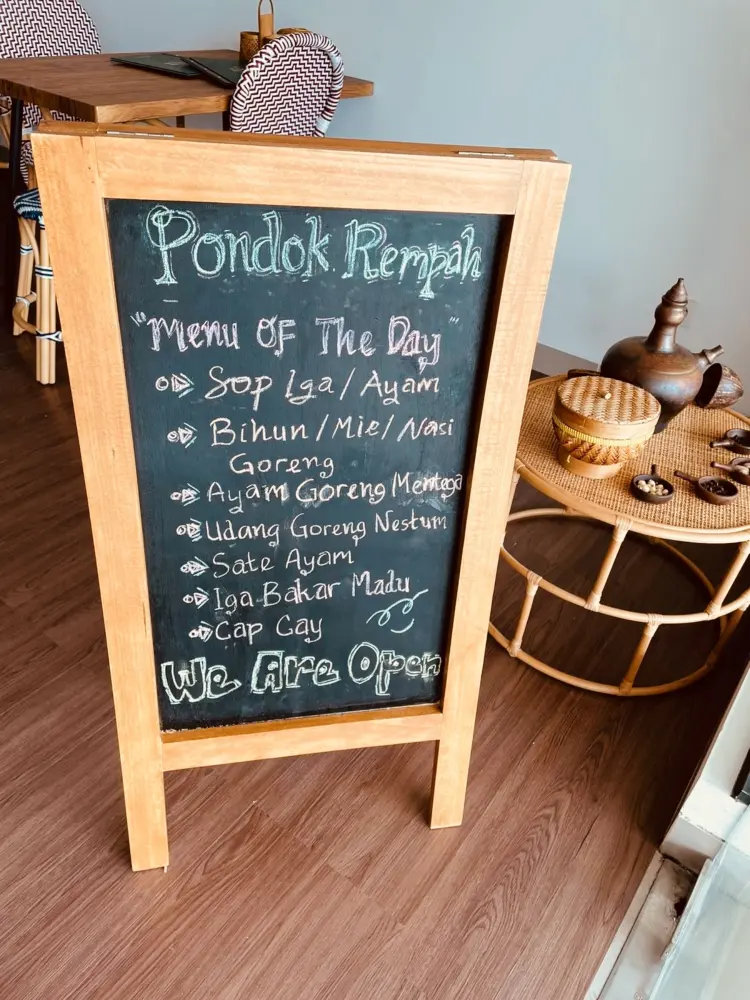 Pondok Rempah
"Menu Of The Day"
Sop Iga/Ayam
Bihun/Mie/Nasi
Goreng
Ayam Goreng Mentega
Udang Goreng Nestum
Sate Ayam
Iga Bakar Madu
Cap Cay
We Are Open